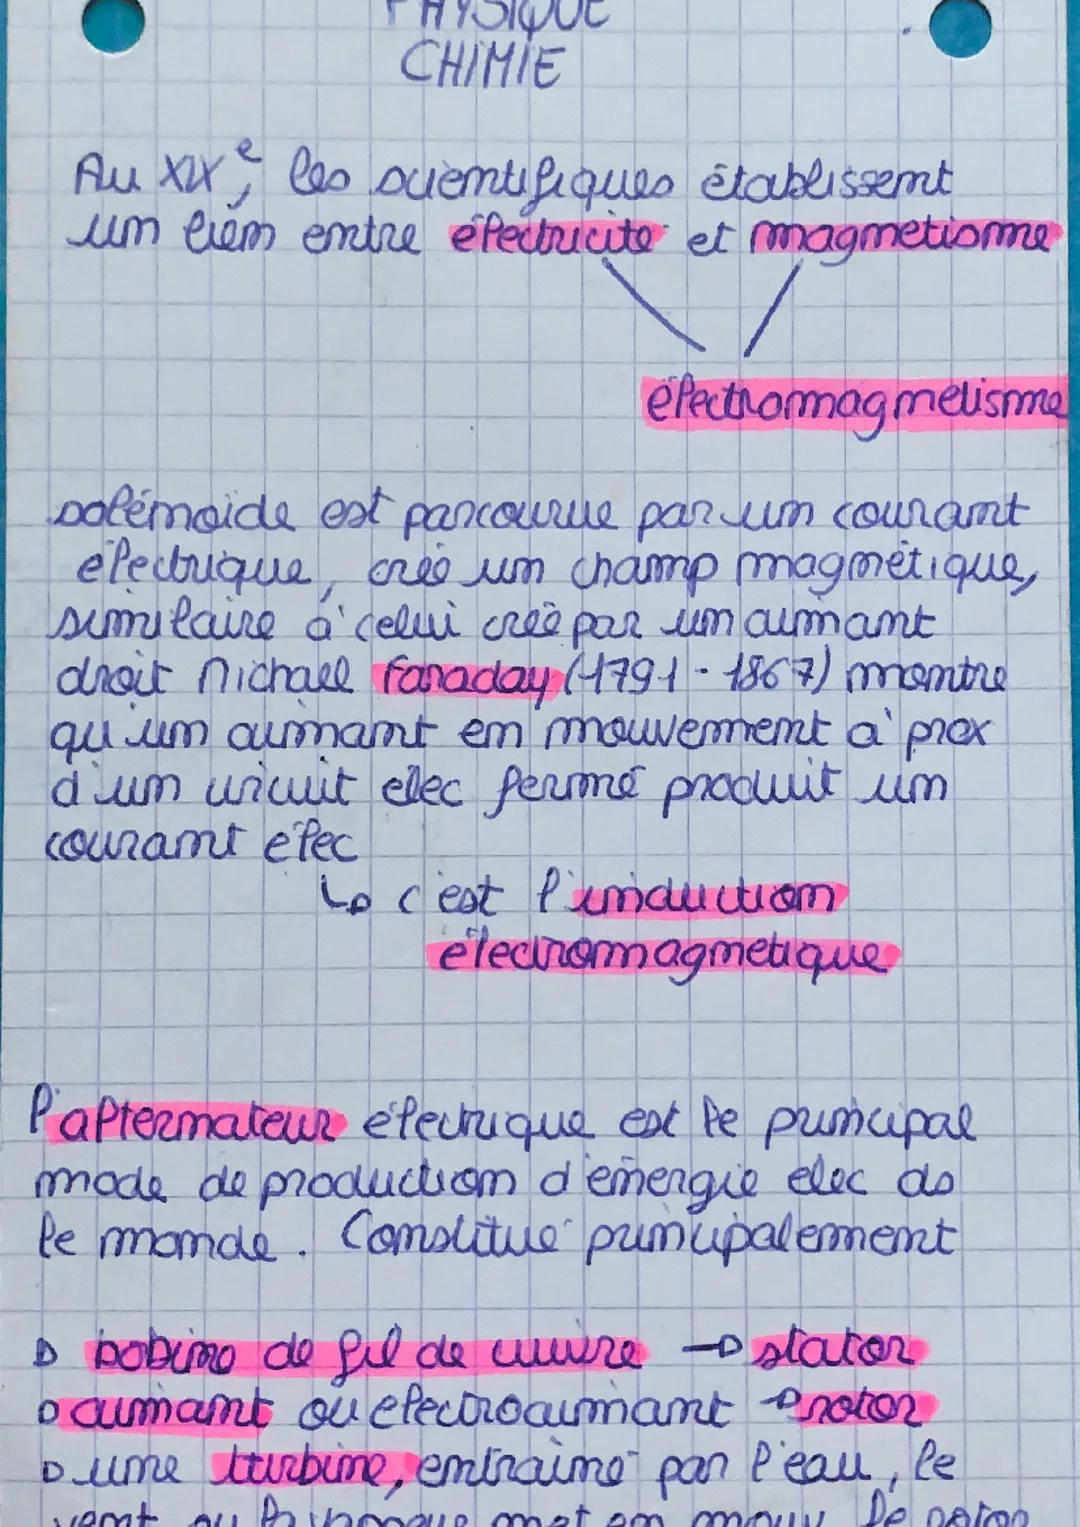 PHYSIQUE
CHIMIE
Au XIXe, les scientifiques établissent
un lien entre électricité et magnetisme
électromagnetisme
solénoïde est parcourue par un courant
électrique, créé un champ magnétique,
similaire à celui créé par un aimant
droit Michael Faraday (1791-1867) montre
qu'un aimant en mouvement à prox
d'un circuit elec fermé produit un
courant elec
↳ c'est l'induction
électromagnetique
l'alternateur électrique est le principal
mode de production d'énergie elec ds
le monde. Constitué principalement
▷ bobine de fil de cuivre → stator
▷ aimant ou electroaimant → rotor
▷ une tturbine, entraîné par l'eau, le
vent ou la vapeur met en mouv le rotor